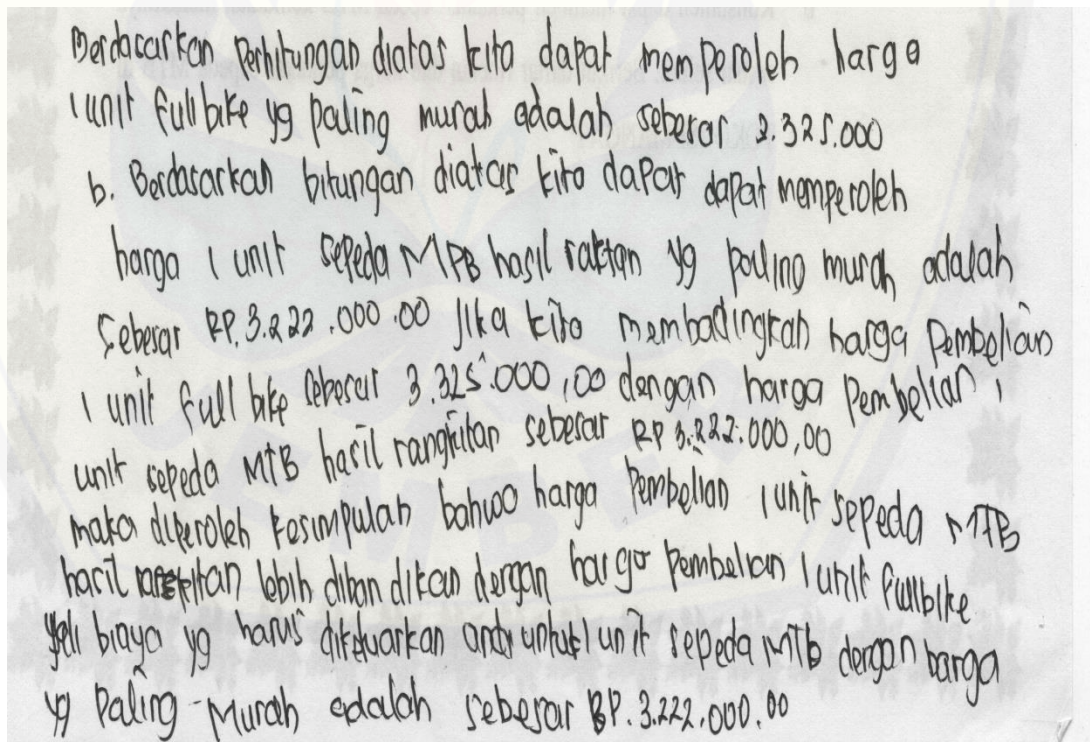 Berdasarkan Perhitungan diatas kita dapat memperoleh harga
1 unit fullbike yg paling murah adalah sebesar 2.325.000
b. Berdasarkan hitungan diatas kita dapat dapat memperoleh
harga 1 unit sepeda MPB hasil raktan yg paling murah adalah
Sebesar RP.3.222.000.00 Jika kita membadingkah harga Pembelian
1 unit full bike sebesar 3.325.000,00 dengan harga Pembelian 1
unit sepeda MTB hasil rangkitan sebesar RP 3.222.000,00
maka diperoleh kesimpulah bahwa harga Pembelian 1 unit sepeda MTB
hasil lebih diban dikan dengan harga Pembelian 1 unit fullbike
biaya yg harus dikeluarkan untuk 1 unit sepeda MTB dengan harga
yg Paling Murah adalah sebesar RP.3.222.000.00
EMBER